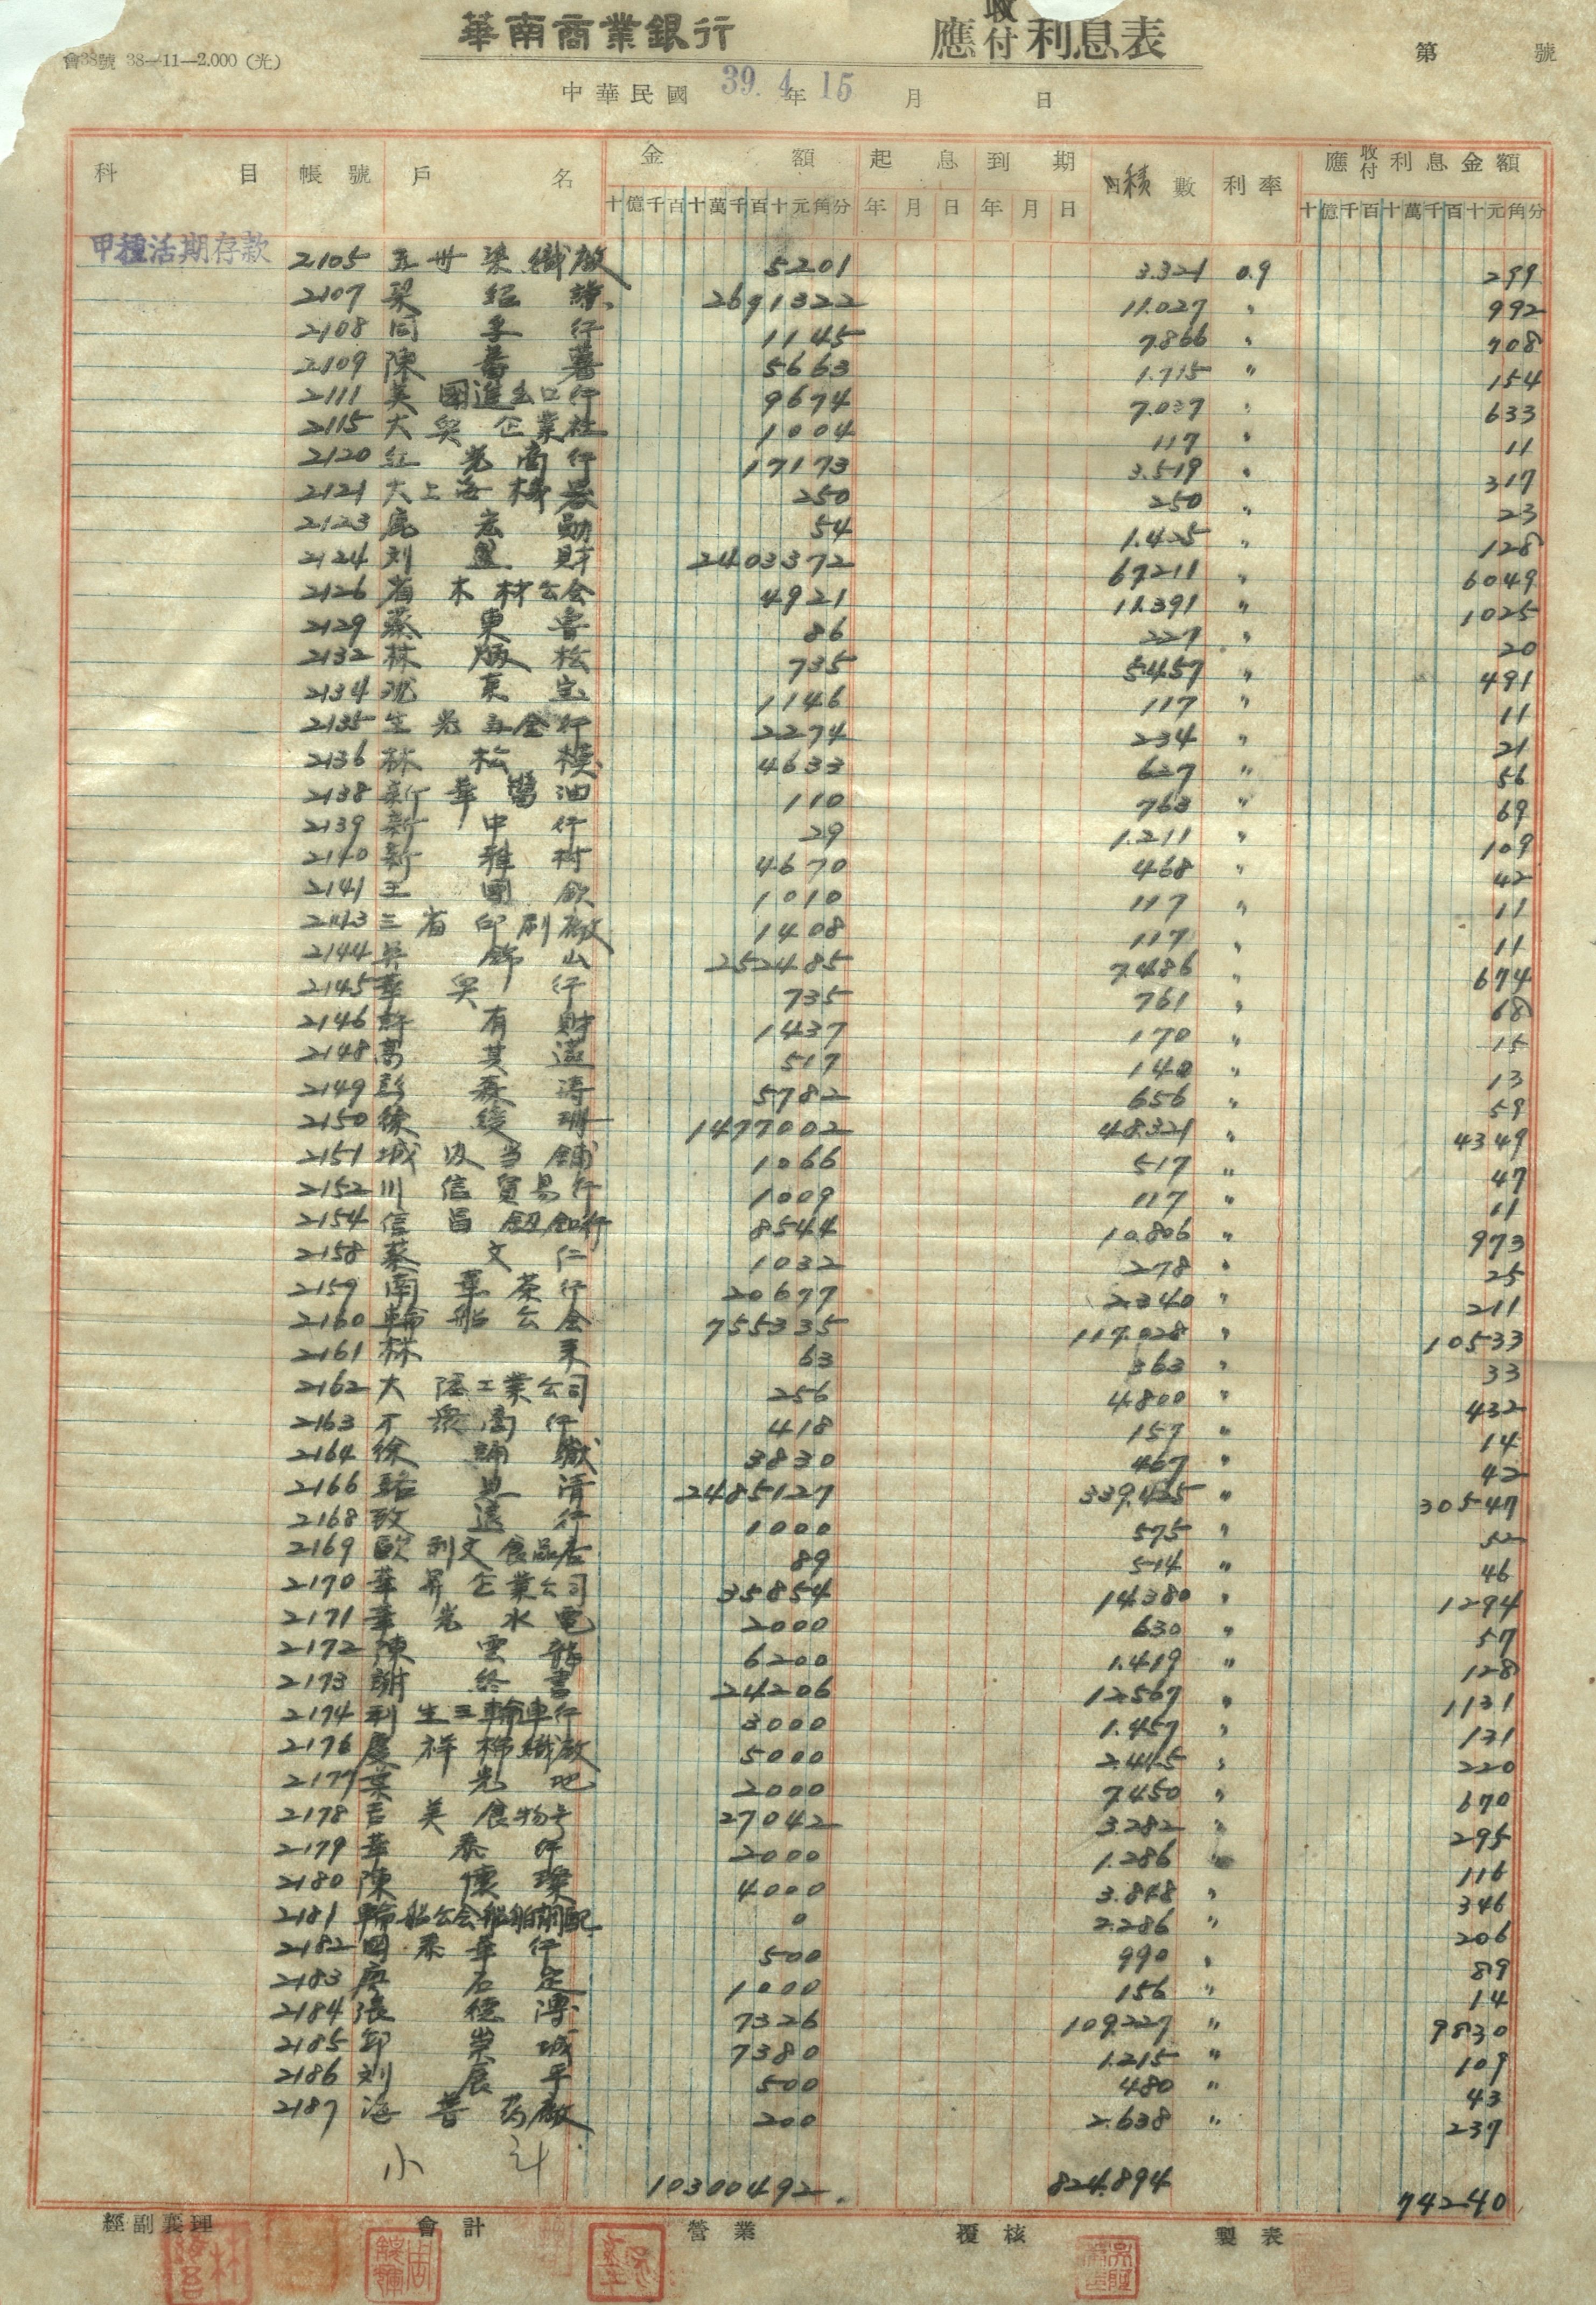 華南商業銀行 應收付利息表
會38號 38—11—2.000 (光) 第 號
中華民國 39. 4. 15 年 月 日
科目 帳號 戶名 金額 起息 到期 積數 利率 應收付利息金額
十億千百十萬千百十元角分 年月日 年月日 十億千百十萬千百十元角分
甲種活期存款 2105 五世染織廠 5201 3.321 0.9 299
2107 梁紹 2691322 11.027 〃 992
2108 同孚行 1145 7.866 〃 708
2109 陳蕃薯 5663 1.715 〃 154
2111 英國進出口行 9674 7.037 〃 633
2115 大興企業社 1004 117 〃 11
2120 紅光商行 17173 3.519 〃 317
2121 大上海 250 250 〃 23
2123 志勛 54 1.425 〃 128
2124 刘盛財 2403372 67211 〃 6049
2126 省木材公会 4921 11.391 〃 1025
2129 蔡東魯 86 227 〃 20
2132 林炳松 735 5.457 〃 491
2134 沈東宝 1146 117 〃 11
2135 生光五金行 2274 234 〃 21
2136 林松模 4633 627 〃 56
2138 新華醬油 110 763 〃 69
2139 新中行 29 1.211 〃 109
2140 新雅 4670 468 〃 42
2141 王國欽 1010 117 〃 11
2143 三省印刷廠 1408 117 〃 11
2144 吳錦山 252485 7.486 〃 674
2145 華興行 735 761 〃 68
2146 許有財 1437 170 〃 15
2148 萬其遠 517 140 〃 13
2149 彭森濤 5782 656 〃 59
2150 徐綾珊 1477002 48.321 〃 4349
2151 城汲当舖 1066 517 〃 47
2152 川信貿易行 1009 117 〃 11
2154 信昌鈕釦行 8544 10.806 〃 973
2158 蔡文仁 1032 278 〃 25
2159 南華茶行 20677 2.340 〃 211
2160 輪船公会 755335 117.028 〃 10533
2161 林 63 363 〃 33
2162 大陸工業公司 256 4.800 〃 432
2163 商行 418 157 〃 14
2164 徐 3830 467 〃 42
2166 清 2485127 339.425 〃 30547
2168 致遠行 1000 575 〃 52
2169 歐利文食品店 89 514 〃 46
2170 華昇企業公司 35854 14.380 〃 1294
2171 華光水電 2000 630 〃 57
2172 陳雲龍 6200 1.419 〃 128
2173 謝終書 24206 12.567 〃 1131
2174 利生三輪車行 3000 1.457 〃 131
2176 慶祥棉織廠 5000 2.445 〃 220
2177 葉光地 2000 7.450 〃 670
2178 吉美食物号 27042 3.282 〃 295
2179 華泰行 2000 1.286 〃 116
2180 陳懷璨 4000 3.848 〃 346
2181 輪船公会船舶調配 0 2.286 〃 206
2182 國泰華行 500 990 〃 89
2183 唐石定 1000 156 〃 14
2184 張德溥 7326 109.227 〃 9830
2185 鄒崇城 7380 1.215 〃 109
2186 刘展平 500 480 〃 43
2187 海普葯廠 200 2.638 〃 237
小計 10300492. 824.894 74240
經副襄理 會計 營業 覆核 製表